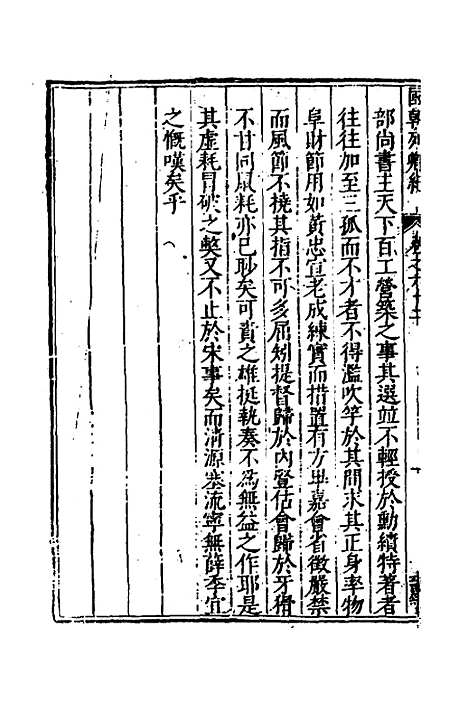 國朝列卿紀　卷之六十二
部尚書主天下百工營築之事其選並不輕授於勳績特著者
往往加至三孤而不才者不得濫吹竽於其間求其正身率物
阜財節用如黃忠宣老成練實而措置有方毕嘉會省徵嚴禁
而風節不橈其指不可多屈矧提督歸於內豎估會歸於牙儈
不甘同鼠耗亦已眇矣可責之雄挺執奏不爲無益之作耶是
其虛耗冒破之獘又不止於宋事矣而清源塞流寧無薛季宜
之慨嘆矣乎